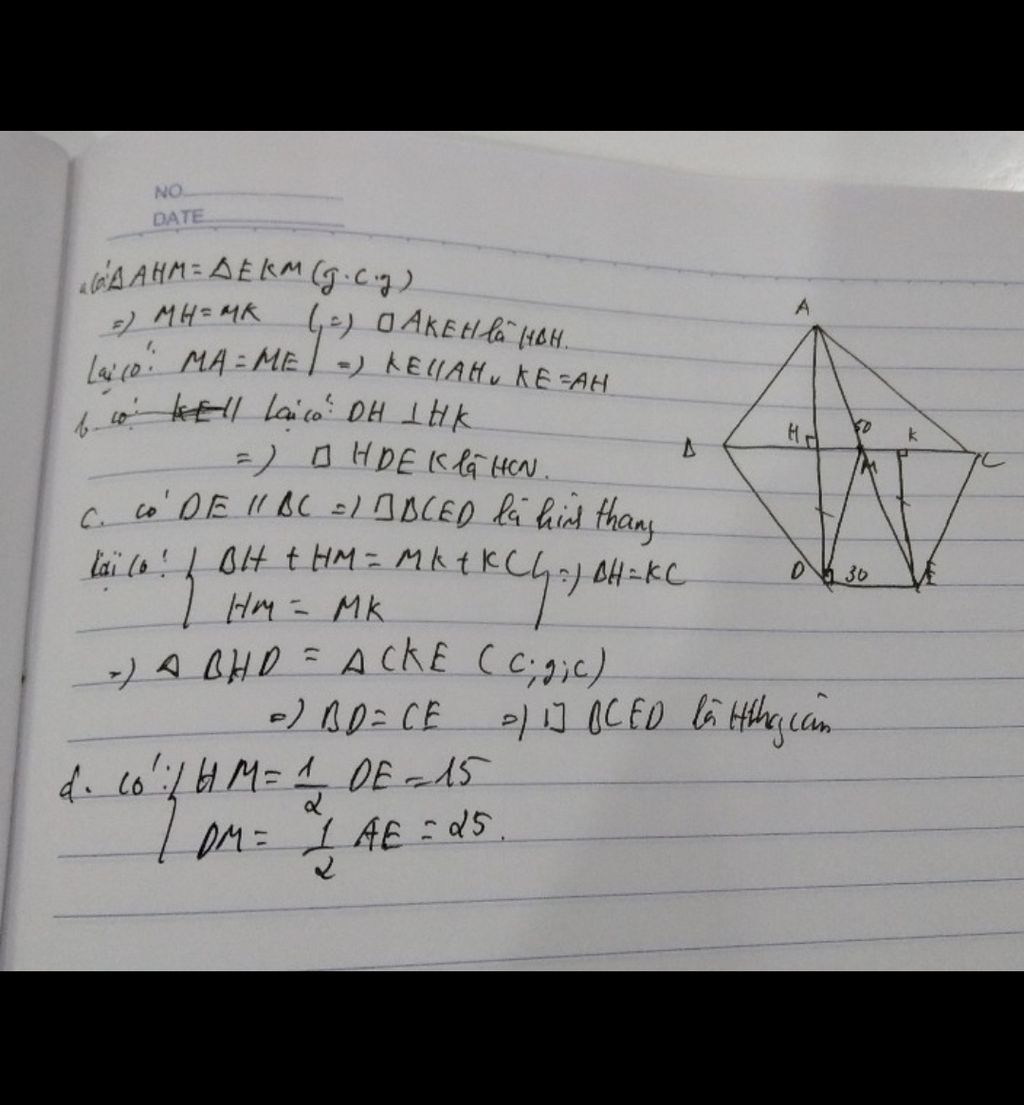 NO
DATE
a. có ΔAHM = ΔEKM (g.c.g)
=> MH = MK => □ AKEH là HBH.
Lại có: MA = ME => KE // AH, KE = AH
b. có KE // Lại có: DH ⊥ HK
=> □ HDEK là HCN.
c. có DE // BC => □ BCED là hình thang
Lại có: { BH + HM = MK + KC => BH = KC
HM = MK
=> Δ BHD = Δ CKE (c;g;c)
=> BD = CE => □ BCED là Hthg cân
d. có: { HM = 1/2 DE = 15
DM = 1/2 AE = 25.
A
B H 50 K C
M
D 30 E